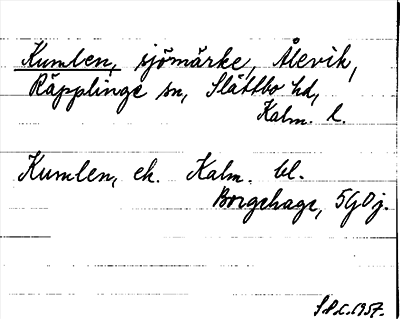 Kumlen, sjömärke, Ålevik,
Räpplinge sn, Slättbo hd,
Kalm. l.
Kumlen, ek. Kalm. bl.
Borgehage, 5G0j.
1957.